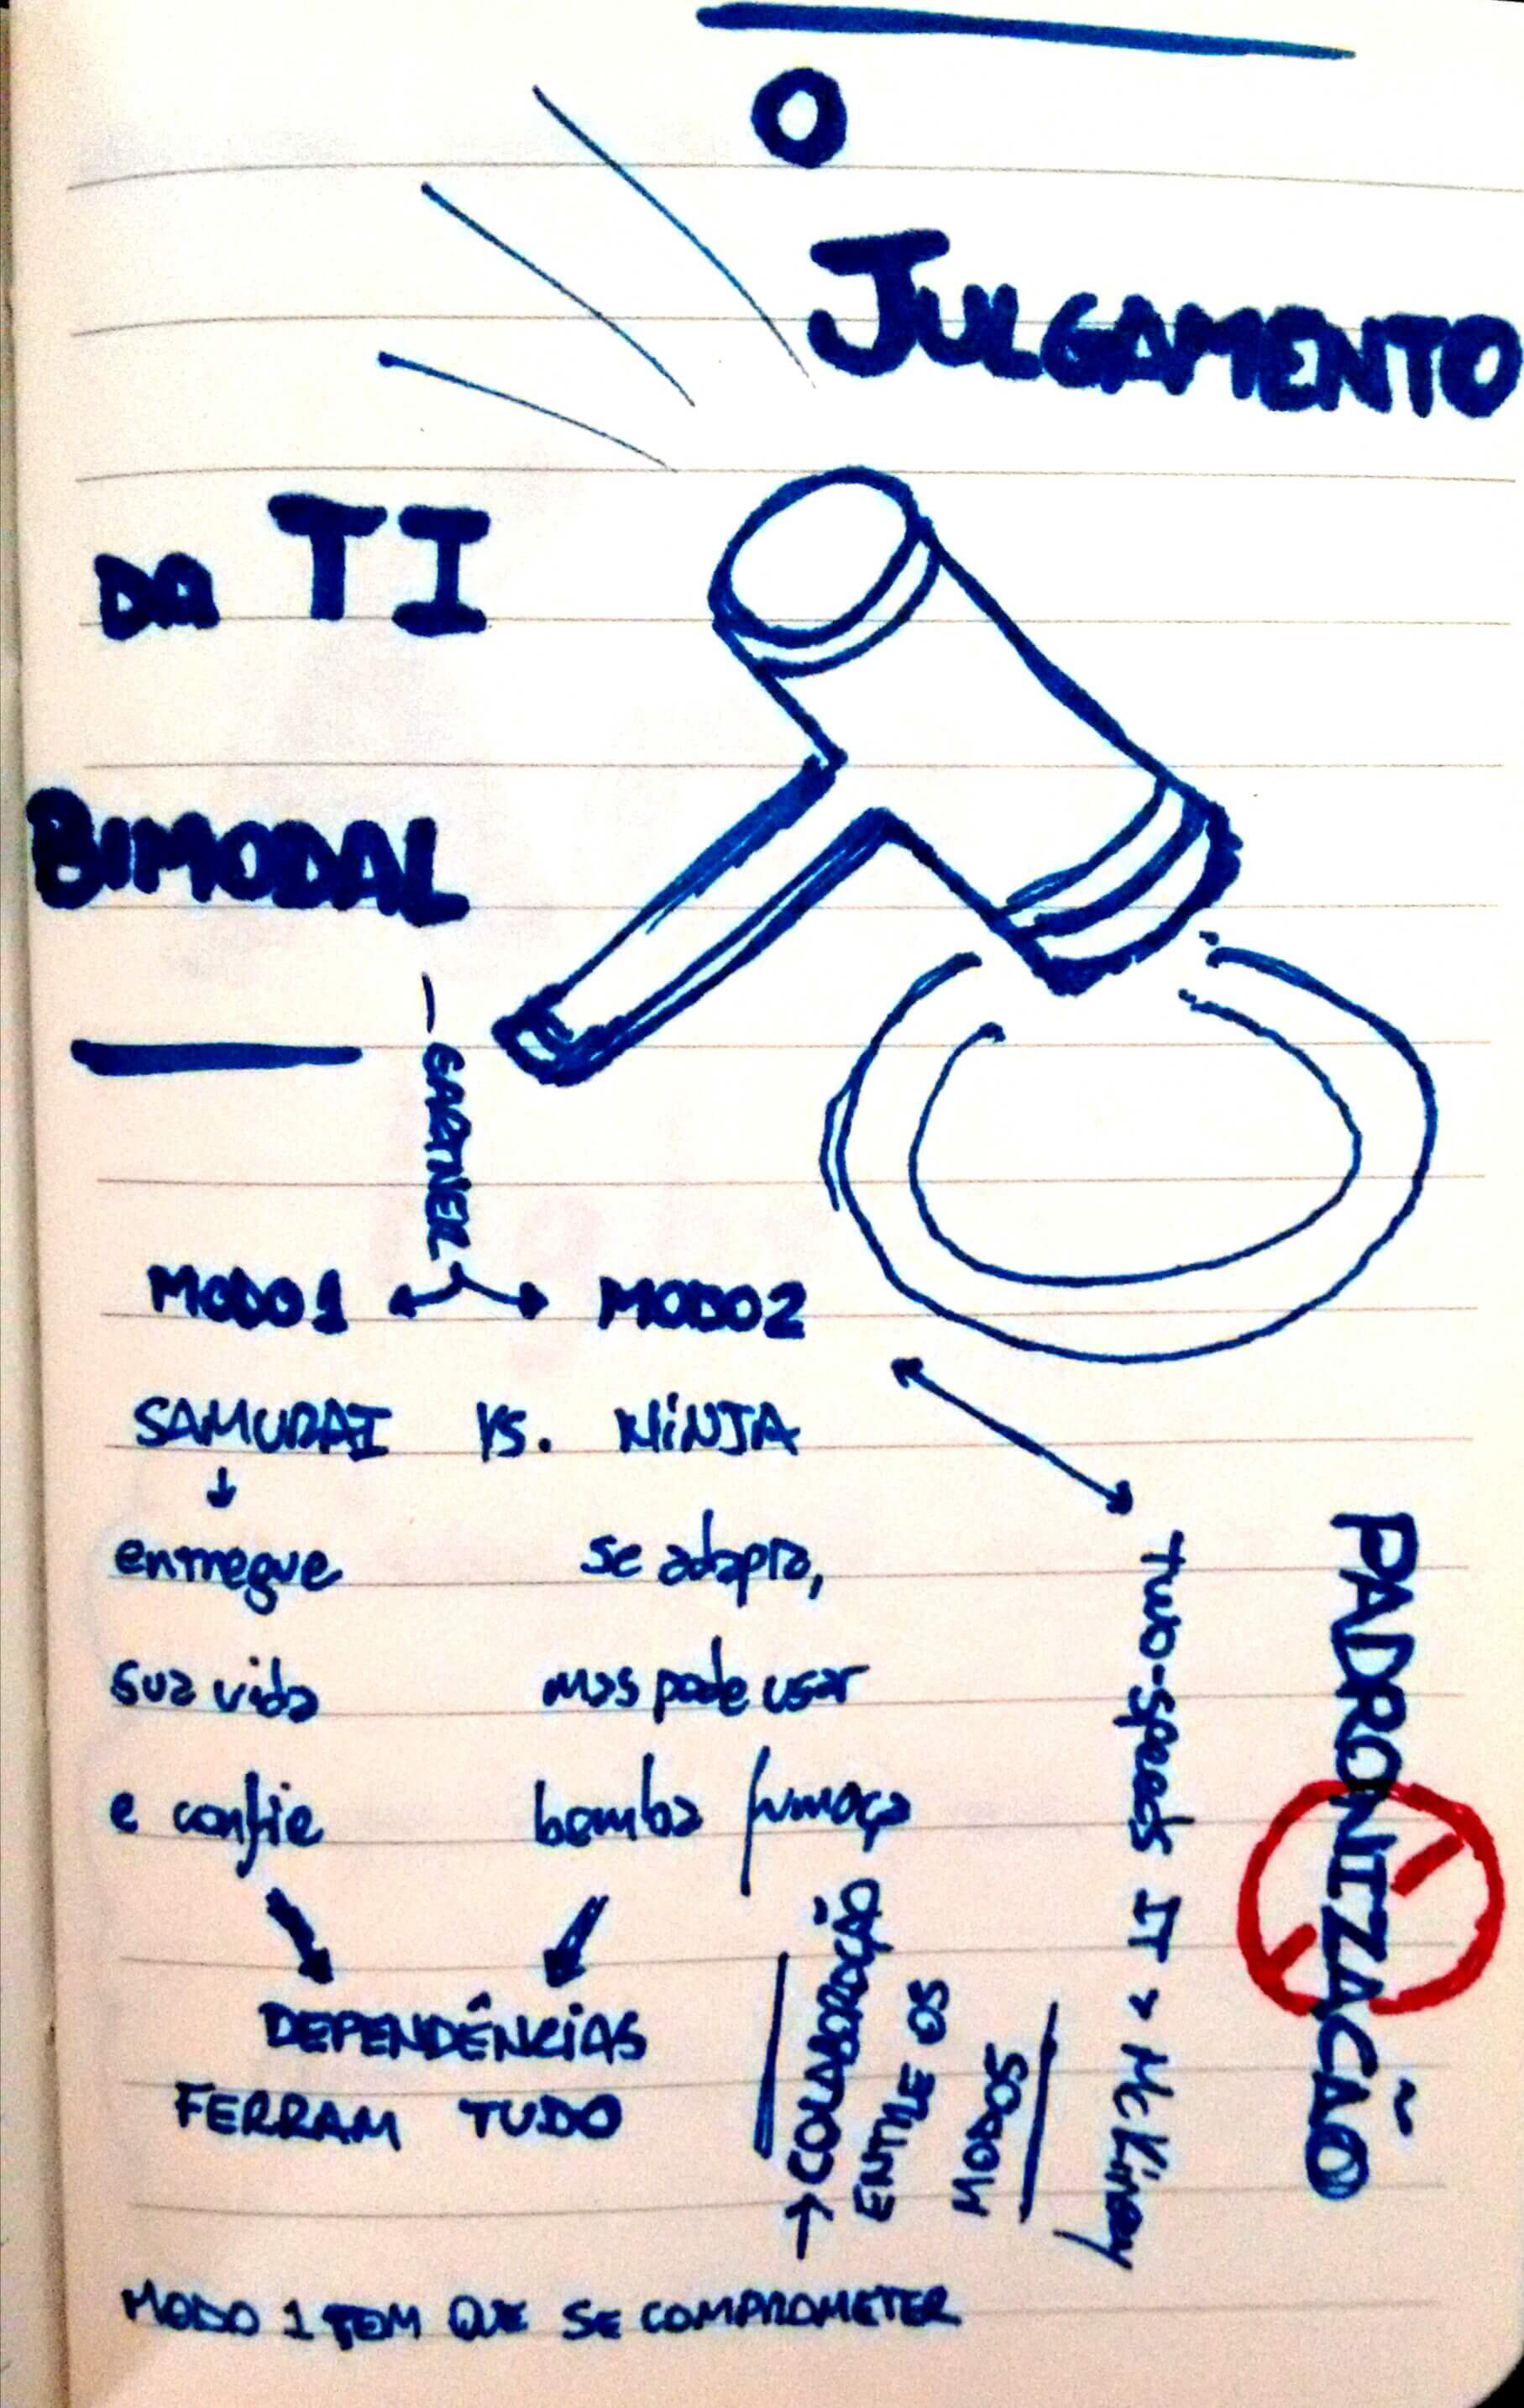 O
JULGAMENTO
DA TI
BIMODAL
GARTNER
MODO1
MODO2
SAMURAI VS. NINJA
entregue
sua vida
e confie
se adapta,
mas pode usar
bomba fumaça
DEPENDÊNCIAS
FERRAM TUDO
COLABORAÇÃO
ENTRE OS
MODOS
MODO 1 TEM QUE SE COMPROMETER
Two-Speeds IT > McKinsey
PADRONIZAÇÃO